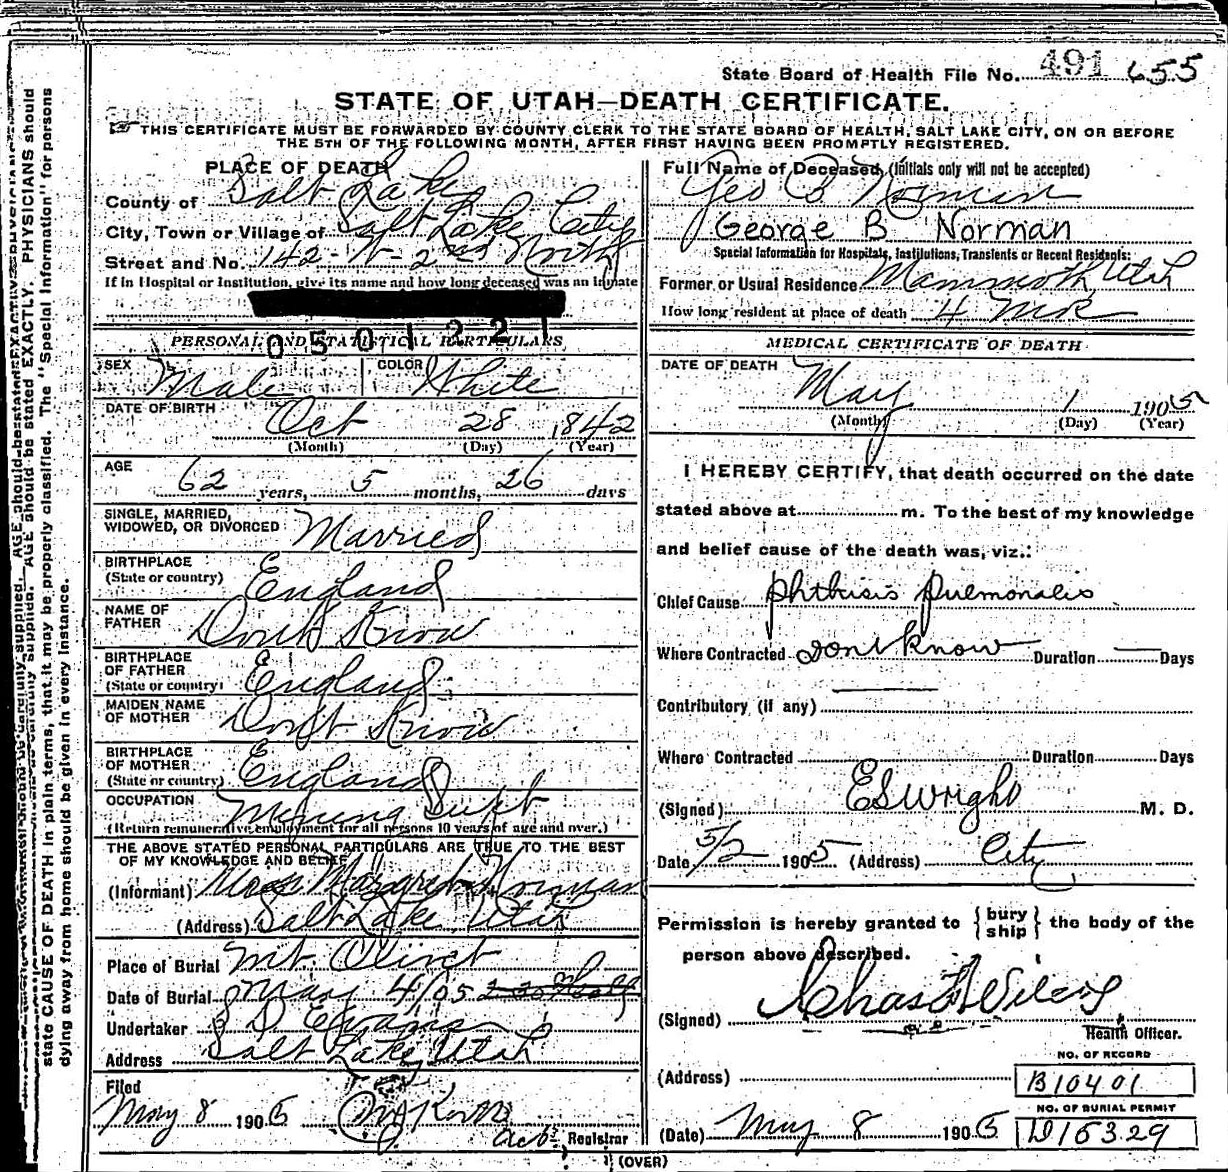 State Board of Health File No. 491 655
STATE OF UTAH—DEATH CERTIFICATE.
THIS CERTIFICATE MUST BE FORWARDED BY COUNTY CLERK TO THE STATE BOARD OF HEALTH, SALT LAKE CITY, ON OR BEFORE
THE 5TH OF THE FOLLOWING MONTH, AFTER FIRST HAVING BEEN PROMPTLY REGISTERED.
PLACE OF DEATH
County of Salt Lake
City, Town or Village of Salt Lake City
Street and No. 142-W-2nd North
If in Hospital or Institution, give its name and how long deceased was an Inmate
0501221
PERSONAL AND STATISTICAL PARTICULARS
SEX Male COLOR White
DATE OF BIRTH Oct 28 1842
(Month) (Day) (Year)
AGE
62 years, 5 months, 26 days
SINGLE, MARRIED,
WIDOWED, OR DIVORCED Married
BIRTHPLACE
(State or country) England
NAME OF
FATHER Dont Know
BIRTHPLACE
OF FATHER
(State or country) England
MAIDEN NAME
OF MOTHER Dont Know
BIRTHPLACE
OF MOTHER
(State or country) England
OCCUPATION Mining Supt
(Return remunerative employment for all persons 10 years of age and over.)
THE ABOVE STATED PERSONAL PARTICULARS ARE TRUE TO THE BEST
OF MY KNOWLEDGE AND BELIEF
(Informant) Mrs Margaret Norman
(Address) Salt Lake Utah
Place of Burial Mt. Olivet
Date of Burial May 4/05
Undertaker S D Evans
Address Salt Lake Utah
Filed
May 8 1905
Registrar
Full Name of Deceased (Initials only will not be accepted)
Geo B Norman
George B Norman
Special Information for Hospitals, Institutions, Transients or Recent Residents:
Former or Usual Residence Mammoth, Utah
How long resident at place of death 4 Mo
MEDICAL CERTIFICATE OF DEATH
DATE OF DEATH
May 1 1905
(Month) (Day) (Year)
I HEREBY CERTIFY, that death occurred on the date
stated above at m. To the best of my knowledge
and belief cause of the death was, viz.:
Chief Cause Phthisis Pulmonalis
Where Contracted Dont know Duration — Days
Contributory (if any)
Where Contracted Duration Days
(Signed) ES Wright M. D.
Date 5/2 1905 (Address) City
Permission is hereby granted to { bury ship } the body of the
person above described.
(Signed) Chas F Wilcox
Health Officer.
NO. OF RECORD
(Address) B10401
NO. OF BURIAL PERMIT
(Date) May 8 1905 D15329
(OVER)
state CAUSE OF DEATH in plain terms, that it may be properly classified. The "Special Information" for persons
dying away from home should be given in every instance.